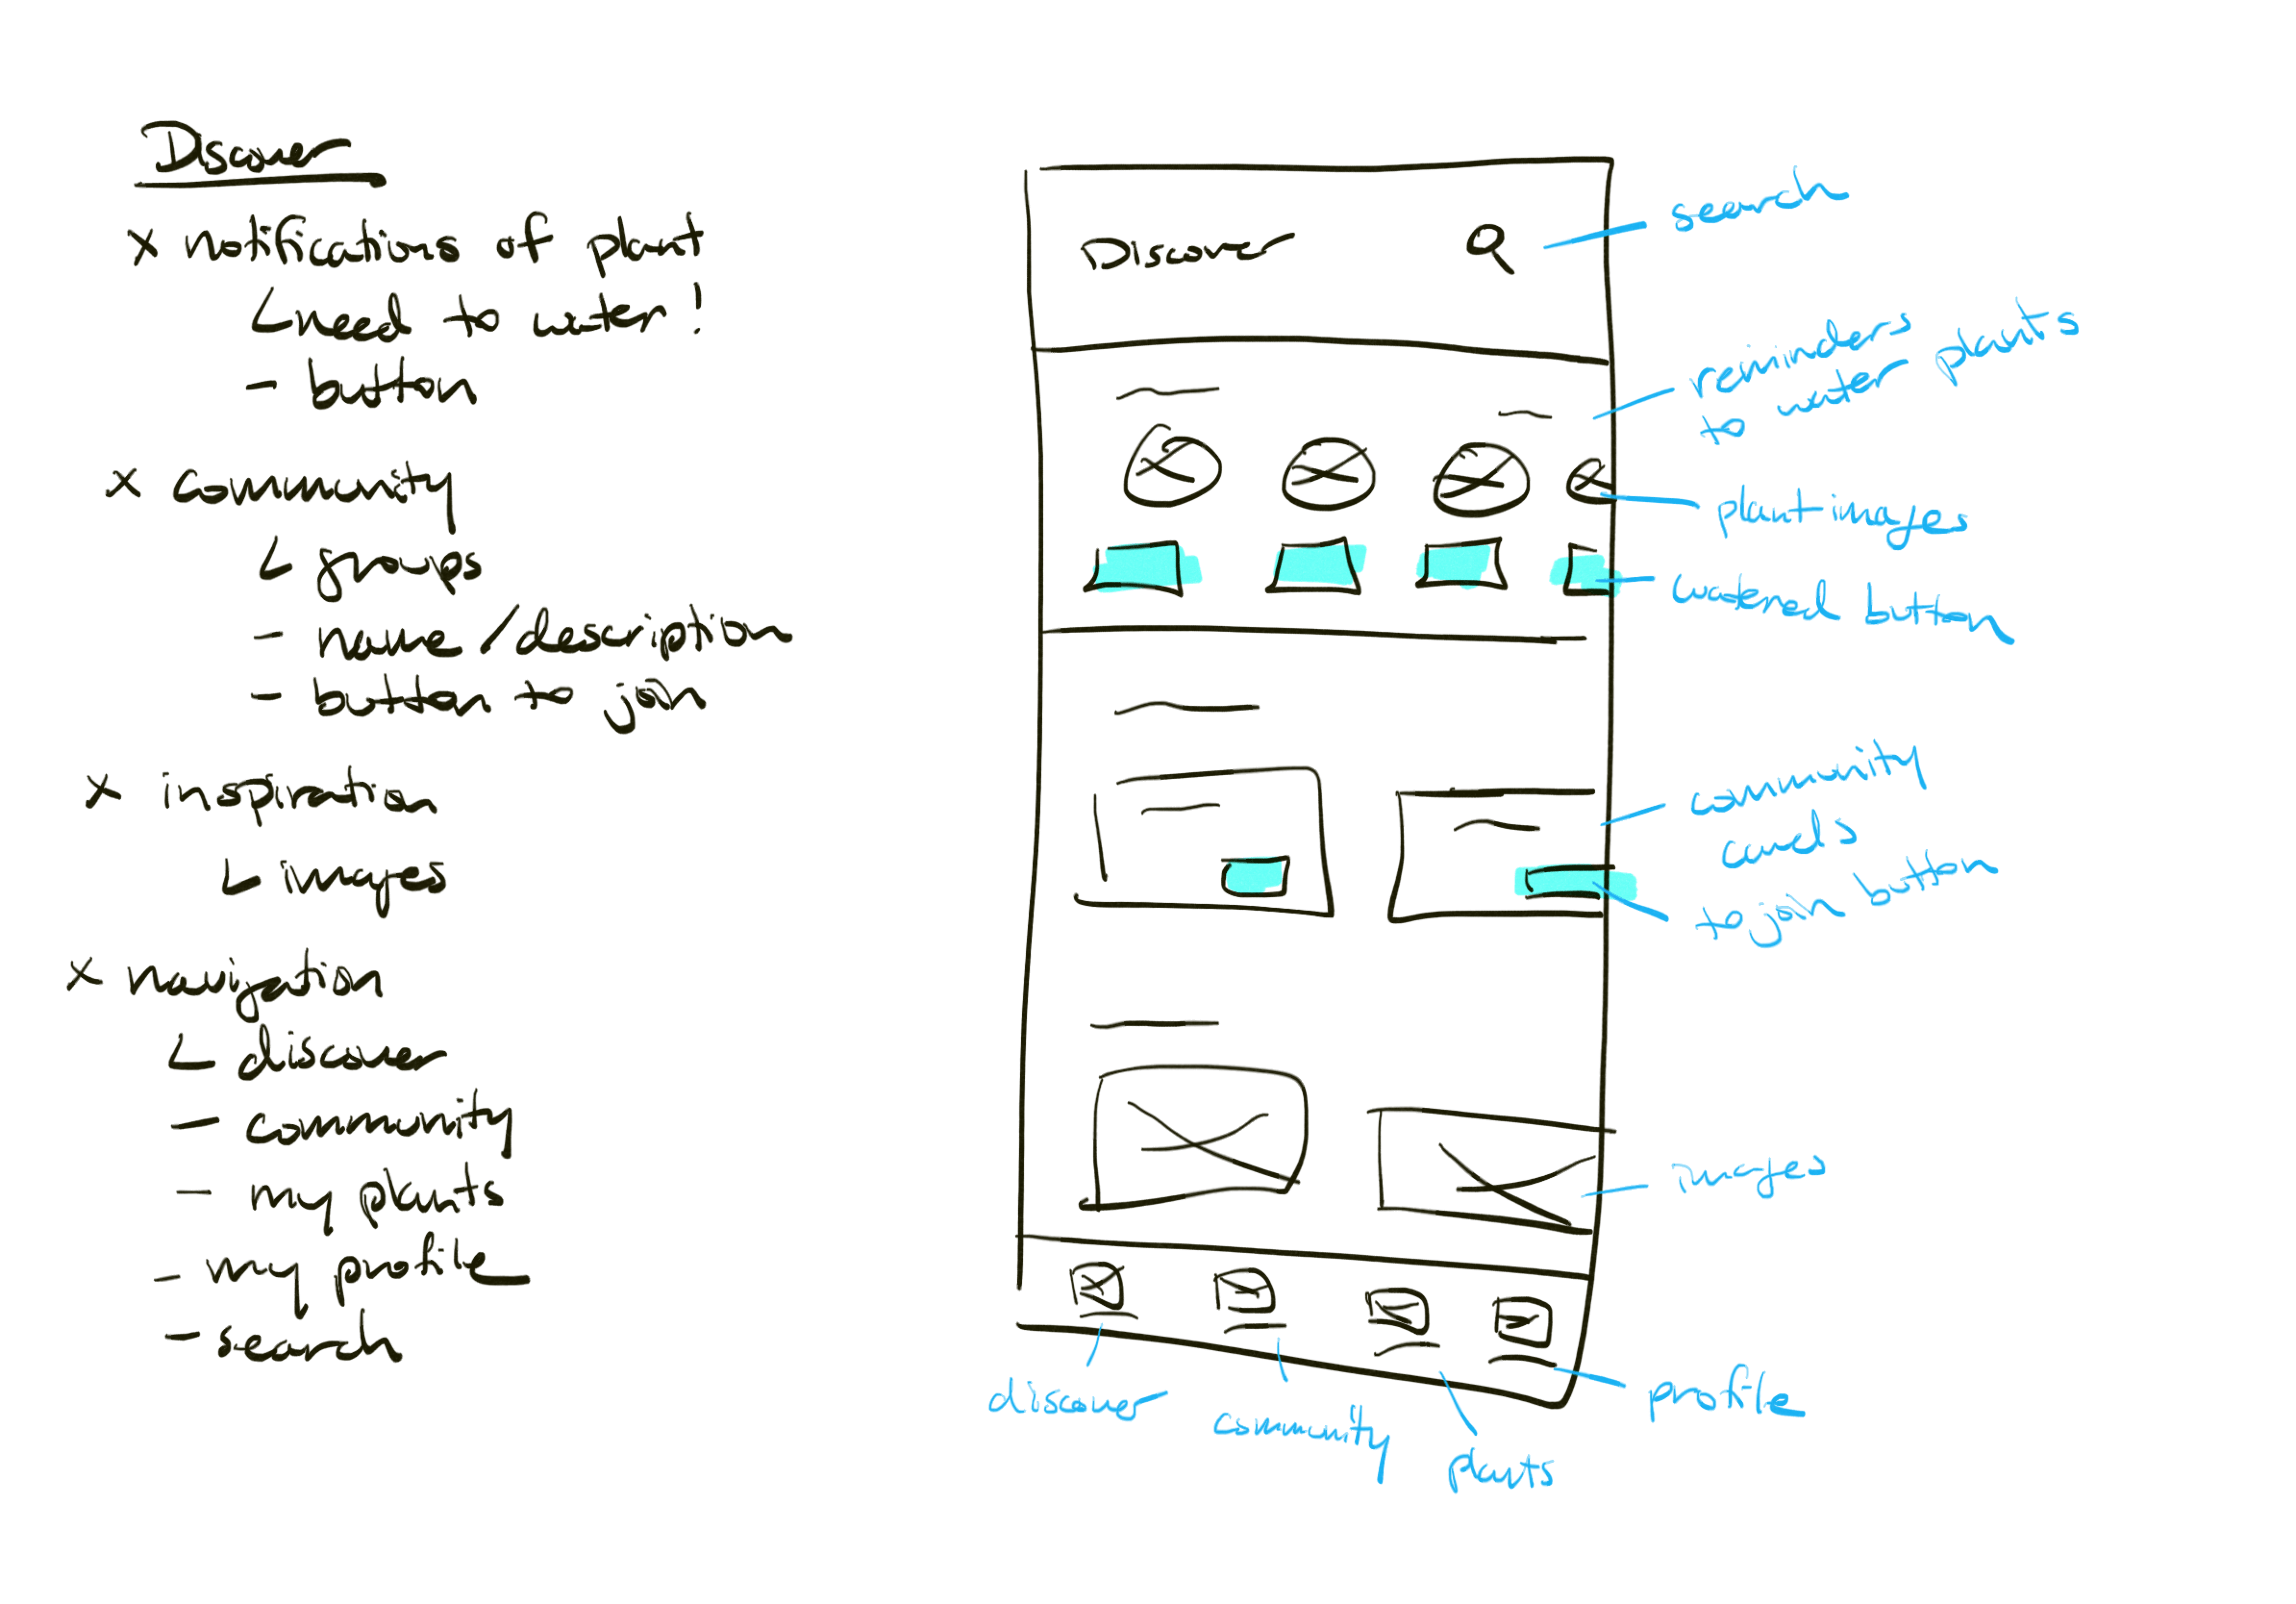 Discover
x notifications of plant
need to water!
- button
x community
groups
- name/description
- button to join
x inspiration
images
x navigation
discover
- community
- my plants
- my profile
- search
Discover
search
reminders
to water plants
plant images
watered button
community
cards
to join button
images
discover
community
plants
profile